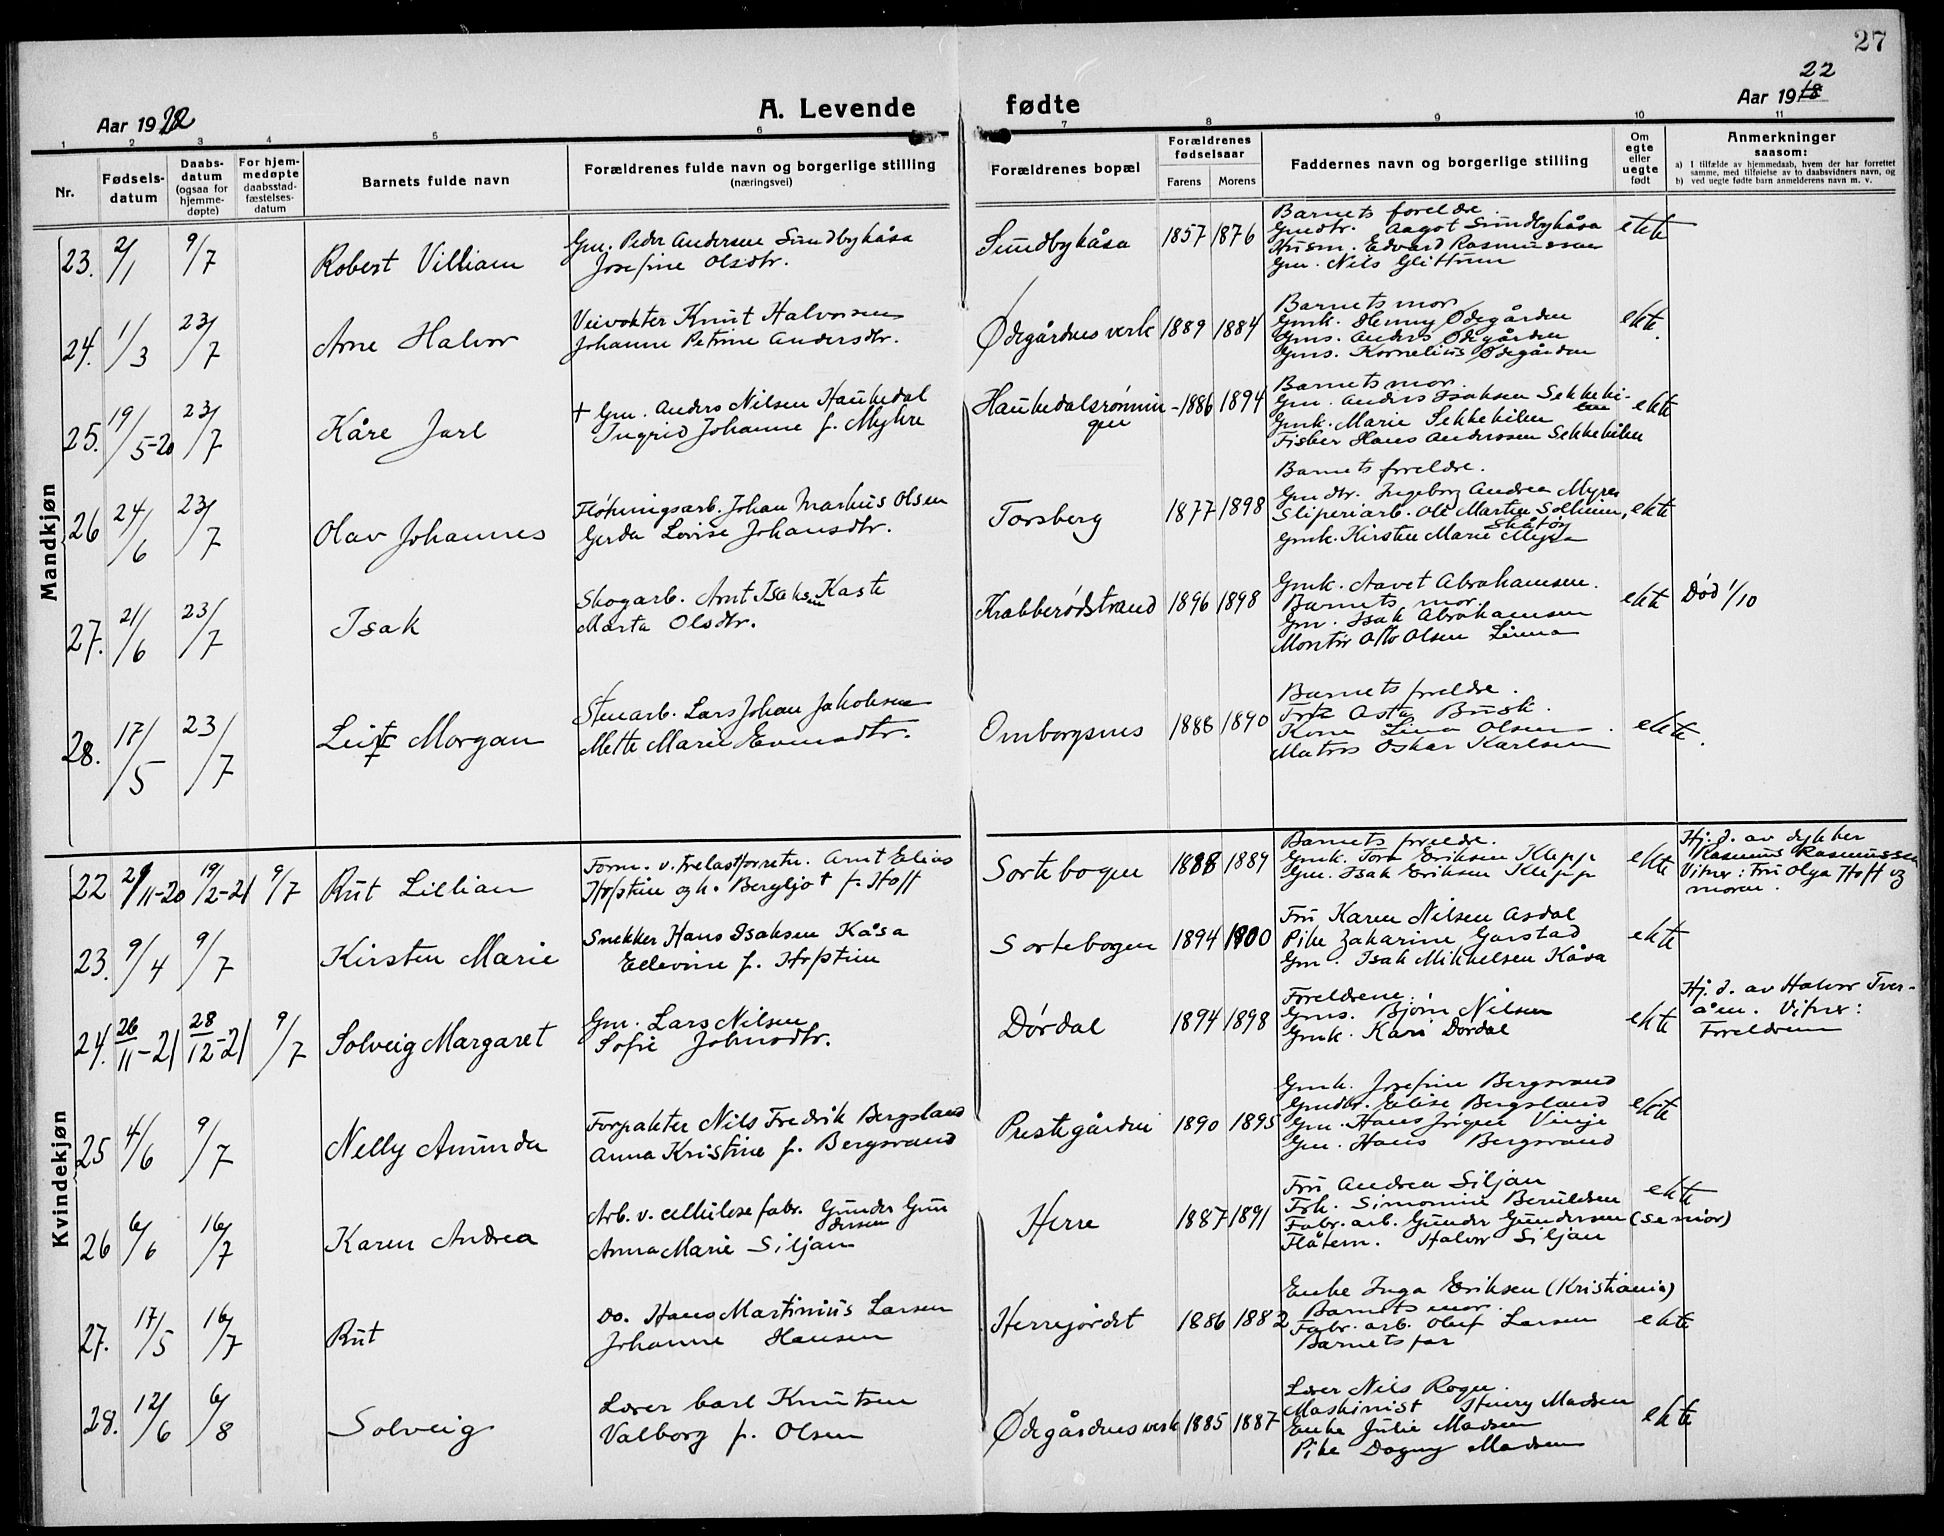 27
Aar 1922
A. Levende fødte
22
Aar 1918
1 2 3 4 5 6 7 8 9 10 11
Nr.
Fødsels-
datum
Daabs-
datum
(ogsaa for
hjemme-
døpte)
For hjem-
medøpte
daabsstad-
fæstelses-
datum
Barnets fulde navn
Forældrenes fulde navn og borgerlige stilling
(næringsvei)
Forældrenes bopæl
Forældrenes
fødselsaar
Farens Morens
Faddernes navn og borgerlige stilling
Om
egte
eller
uegte
født
Anmerkninger
saasom:
a) I tilfælde av hjemmedaab, hvem der har forrettet
samme, med tilføielse av to daabsvidners navn, og
b) ved uegte fødte barn anmelderens navn m. v.
Mandkjøn
23. 2/1 9/7 Robert Villiam
Gm. Peder Andersen Sundbykåsa
Josefine Olsdtr.
Sundbykåsa 1857 1876
Barnets foreldre
Gmdtr. Aagot Sundbykåsa
Husm. Edvard Rasmussen
Gm. Nils Glittum
ekte
24. 1/3 23/7 Arne Halvor
Veivokter Knut Halvorsen
Johanne Petrine Andersdtr.
Ødegårdens verk 1889 1884
Barnets mor
Gmk. Henny Ødegården
Gms. Anders Ødegården
Gms. Kornelius Ødegården
ekte.
25. 19/5-20 23/7 Kåre Jarl
+ Gm. Anders Nilsen Haukedal
Ingrid Johanne f. Myhre
Haukedalsrønnin-
gen
1886 1894
Barnets mor.
Gm. Anders Isaksen Sekkeki-
len
Gmk. Marie Sekkekilen
Fisker Hans Anderssen Sekkekilen
ekte
26 24/6 23/7 Olav Johannes
Fløtningsarb. Johan Markus Olsen
Gerda Lovise Johansdtr.
Torsberg 1877 1898
Barnets foreldre.
Gmdtr. Ingeborg Andrea Myren
Sliperiarb. Ole Martin Solheim,
Skåtøy
Gmk. Kirsten Marie Myren
ekte
27. 21/6 23/7 Isak
Skogarb. Arnt Isaksen Kaste
Marta Olsdtr.
Krabberødstrand 1896 1898
Gmk. Aavet Abrahamsen.
Barnets mor.
Gm. Isak Abrahamsen
Montør Otto Olsen Linna
ekte
Død 1/10
28. 17/5 23/7 Leif Morgan
Stenarb. Lars Johan Jakobsen
Mette Marie Evensdtr.
Omborgsnes 1888 1890
Barnets foreldre.
Frk Asta Busk.
Kone Lina Olsen.
Matros Oskar Karlsen
ekte.
Kvindekjøn
22 29/11-20 19/2-21 9/7 Rut Lillian
Form. v. Trelastforretn. Arnt Elias
Hofstein og h. Bergljot f. Hoff
Sortebogen 1888 1889
Barnets foreldre.
Gmk. Tora Eriksen Klepp
Gm. Isak Eriksen Klepp
ekte
Hj. d. av dykker
Rasmus Rasmussen
Vitner: Fru Olga Hoff og
moren.
23. 9/4 9/7 Kirsten Marie
Snekker Hans Isaksen Kåsa
Ellevine f. Hofstein
Sortebogen 1894 1900
Fru Karen Nilsen Asdal
Pike Zakarine Garstad
Gm. Isak Mikkelsen Kåsa
ekte
24. 26/11-21 28/12-21 9/7 Solveig Margaret
Gm. Lars Nilsen
Sofie Johnsdtr.
Dørdal 1894 1898
Foreldrene:
Gms. Bjørn Nilsen
Gmk. Kari Dørdal
ekte
Hj. d. av Halvor Tver-
åen. Vitner:
Foreldrene
25 4/6 9/7 Nelly Amunda
Forpakter Nils Fredrik Bergsland
Anna Kristine f. Bergsvand
Prestegården 1890 1895
Gmk. Josefine Bergsvand
Gmdtr. Elise Bergsland
Gm. Hans Jørgen Vinje
Gm. Hans Bergsvand
ekte
26 6/6 16/7 Karen Andrea
Arb. v. cellulose fabr. Gunder Gun
dersen
Anna Marie Siljan
Herre 1887 1891
Fru Andrea Siljan
Frk. Simonine Beruldsen
Fabr. arb. Gunder Gundersen (senior)
Flåtem. Halvor Siljan
ekte
27. 17/5 16/7 Rut
Do. Hans Martinius Larsen
Johanne Hansen
Herrejordet 1886 1882
Enke Inga Eriksen (Kristiania)
Barnets mor.
Fabr. arb. Oluf Larsen
Barnets far
ekte
28. 12/6 6/8 Solveig
Lærer Carl Knutsen
Valborg f. Olsen
Ødegårdens verk 1885 1887
Lærer Nils Rogn.
Maskinist Henry Madsen
Enke Julie Madsen
Pike Dagny Madsen
ekte